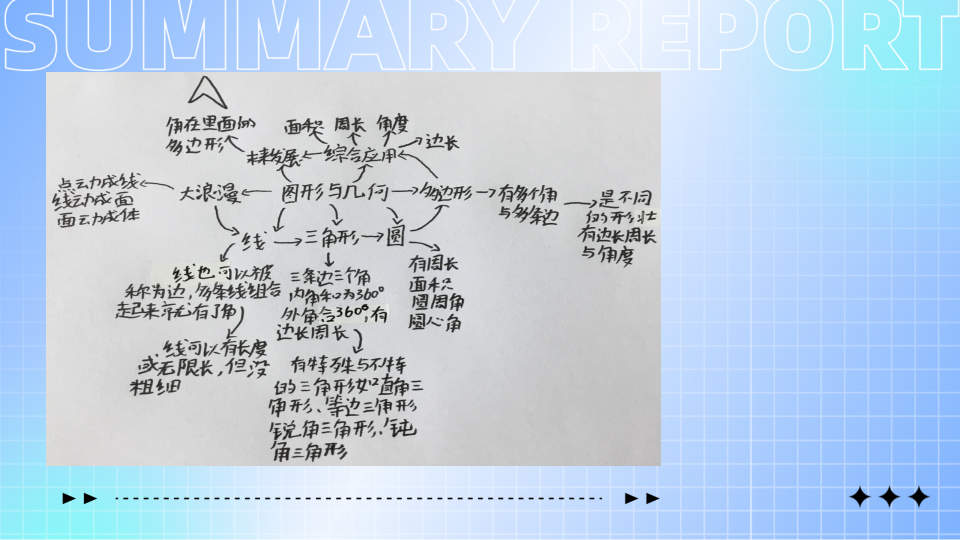 SUMMARY REPORT
角在里面的
多边形
面积 周长 角度
边长
未来发展
综合应用
点动成线
线动成面
面动成体
大浪漫
图形与几何
多边形
有多个角
与多条边
是不同
的形壮
有边长周长
与角度
线
三角形
圆
线也可以被
称为边,多条线组合
起来就有了角
线可以有长度
或无限长,但没
粗细
三条边三个角
内角和为360°
外角合360°,有
边长周长
有特殊与不特
的三角形如直角三
角形、等边三角形
锐角三角形、钝
角三角形
有周长
面积
圆周角
圆心角